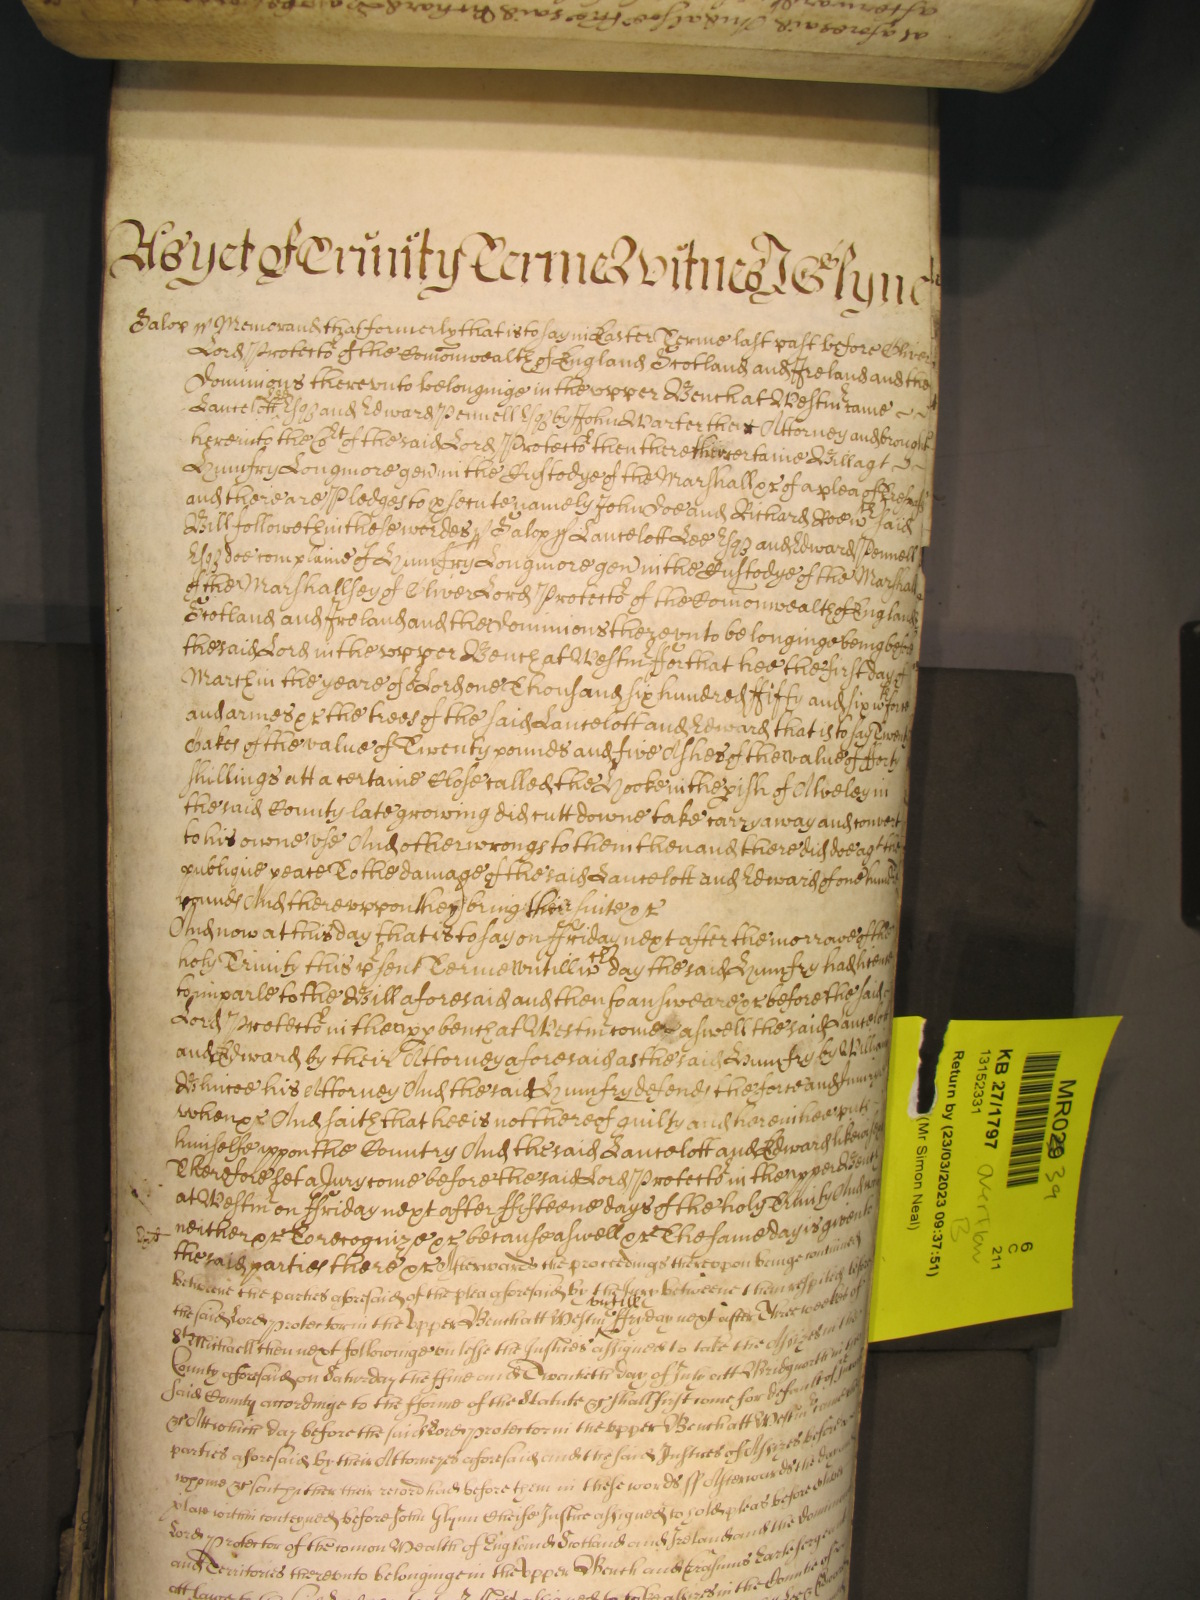 at aforesaid And also the said Richard
afterwards
As yet of Trinity Terme Witnes J Glyne
Salop ss Memorand that formerly that is to say in Easter Terme last past before Oliver
Lord Protector of the Comonwealth of England Scotland and Ireland and the
Dominions therevnto belonginge in the vpper Bench at Westm came
Lancelott Lee Esqz and Edward Pennell Esqz by John Warter their Attorney and brought
here into the Crt of the said Lord Protector then there their certaine Bill agt
Humfry Longmore gen in the Custodye of the Marshall &c of a plea of Trespass
and there are Pledges to psecute namely John Doe and Richard Roe wch said
Bill followeth in these wordes ss Salop ss Lancelott Lee Esqz and Edward Pennell
Esqz doe complaine of Humfry Longmore gen in the Custodye of the Marshall
of the Marshallsey of Oliver Lord Protector of the Comonwealth of England
Scotland and Ireland and the Dominions therevnto belonginge being before
the said Lord in the vpper Bench at Westm ffor that hee the first day of
March in the yeare of or Lord one Thousand six hundred ffiffty and six wth force
and armes &c the trees of the said Lancelott and Edward that is to say Twenty
Oakes of the value of Twenty pounds and five Ashes of the value of fforty
shillings att a certaine Close called the Hooke in the pish of Alveley in
the said County late growing did cutt downe take carry away and convert
to his owne vse And other wrongs to them then and there did doe agt the
publique peace To the damage of the said Lancelott and Edward of one hundred
pounds And therevppon they bring their suite &c
And now at this day that is to say on ffriday next after the morrowe of the
holy Trinity this psent Terme vntill wch day the said Humfry had licence
to imparle to the Bill aforesaid and then to answeare &c before the said
Lord Protector in the vpp bench at Westm come aswell the said Lancelott
and Edward by their Attorney aforesaid as the said Humfry by William
his Attorney And the said Humfry defends the force and Iniury
when &c And saith that hee is not thereof guilty and herein hee puts
himselfe vppon the Country And the said Lancelott and Edward likewise
Therefore let a Jury come before the said Lord Protector in the vpper Bench
at Westm on ffriday next after ffifteene dayes of the holy Trinity And who
neither &c To recognize &c because aswell &c The same day is given to
the said parties there &c Afterwards the proceedings therevpon beinge continued
betweene the parties aforesaid of the plea aforesaid by the Jury betweene them respited before
the said Lord protector in the vpper Bench att Westm vntill ffriday next after Three weekes of
St Michaell then next followinge vnlesse the Justices assigned to take the Assizes in the
County aforesaid on Saturday the ffive and Twentieth day of July att Bridgnorth in the
said County accordinge to the fforme of the Statute &c shall first come for default of Jurors
&c Att which day before the said Lord protector in the vpper Bench att Westm come the
parties aforesaid by their Attorneyes aforesaid and the said Justices of Assizes before
whome &c sent hither their record had before them in these words ss Afterwards the day and
place within conteyned before John Glynn Cheife Justice assigned to hold pleas before Oliver
Lord Protector of the comon Wealth of England Scotland and Ireland and the dominions
and Territories therevnto belonginge in the vpper Bench and Erasmus Earle serjeant
att lawe
MR029
39
KB 27/1797
13152331
Overton
B
6
C
211
Return by (23/03/2023 09:37:51)
(Mr Simon Neal)